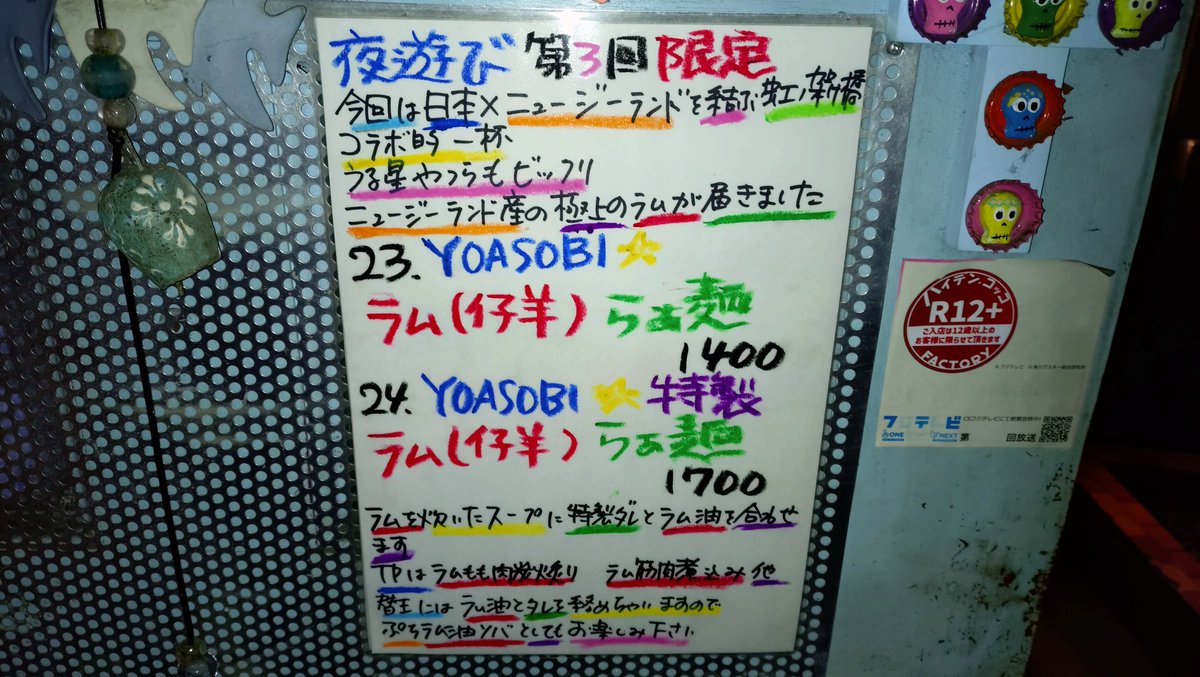 夜遊び 第3回 限定
今回は日本×ニュージーランドを結ぶ虹ノ架け橋
コラボ的一杯
うる星やつらもビックリ
ニュージーランド産の極上のラムが届きました
23. YOASOBI☆
ラム(仔羊)らぁ麺
1400
24. YOASOBI☆特製
ラム(仔羊)らぁ麺
1700
ラムを炊いたスープに特製ダレとラム油を合わせ
ます
TPはラムもも肉炭火炙り ラム筋肉煮込み他
替玉にはラム油とタレを絡めちゃいますので
ぷちラム油ソバとしてもお楽しみ下さい
ハイテン・コッコ
R12+
ご入店は12歳以上の
お客様に限らせて頂きます
FACTORY
フジテレビ
ONE NEXT
CSフジテレビにて絶賛放映中!
第 回放送